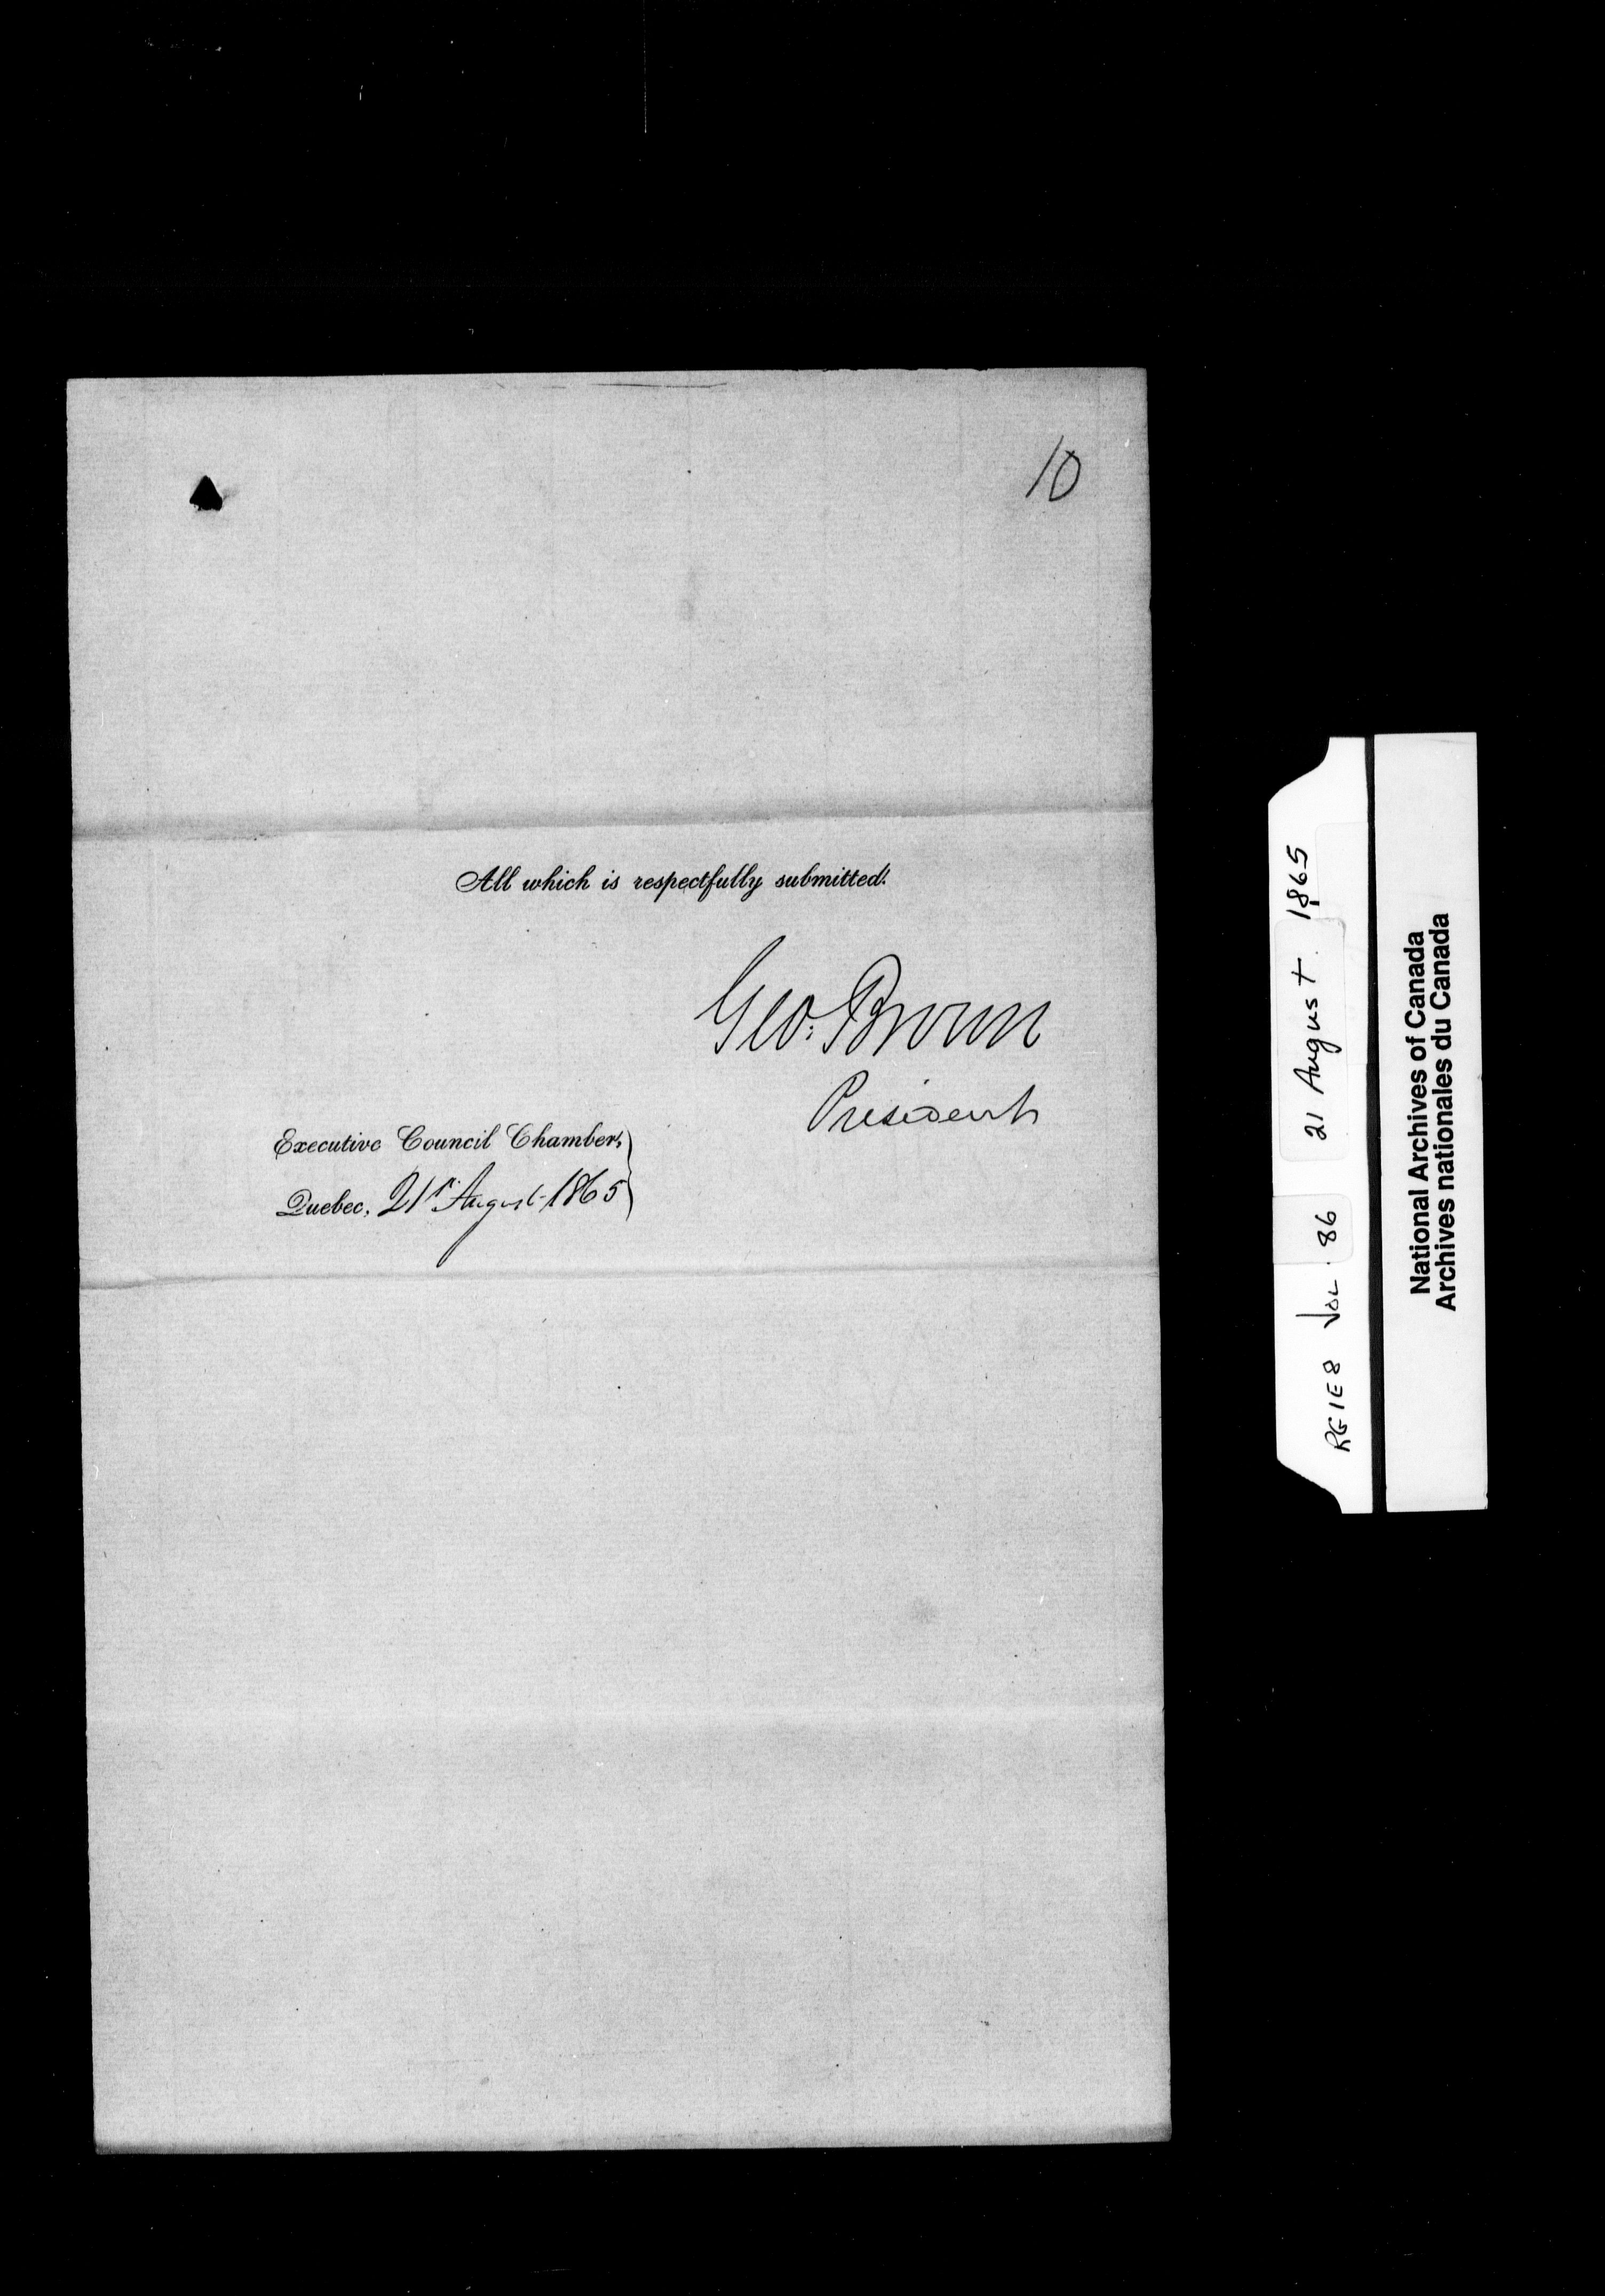 10
All which is respectfully submitted.
Geo. Brown
President
Executive Council Chamber,
Quebec, 21st August 1865
RG1E8 VOL. 86 21 August 1865
National Archives of Canada
Archives nationales du Canada